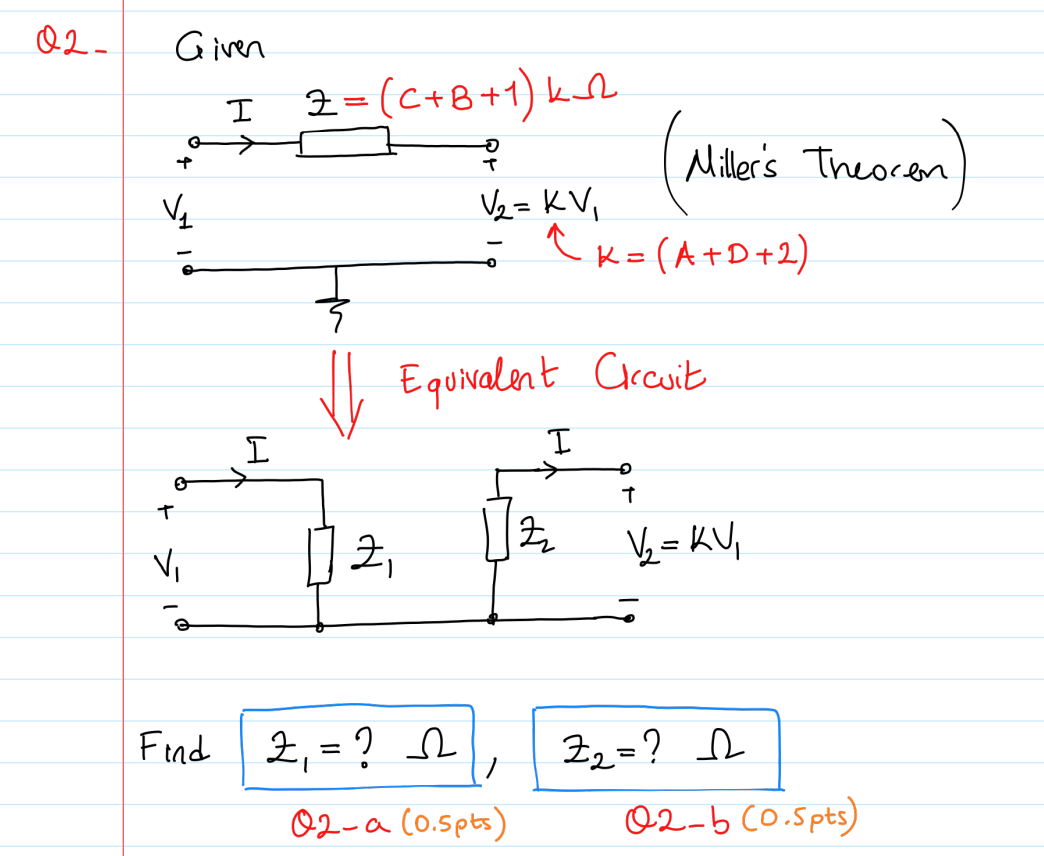 Q2-
Given
I
Z = (C+B+1) kΩ
+
+
(Miller's Theorem)
V1
V2 = KV1
-
-
K = (A+D+2)
Equivalent Circuit
I
I
+
+
V1
Z1
Z2
V2 = KV1
-
-
Find Z1 = ? Ω , Z2 = ? Ω
Q2-a (0.5pts)
Q2-b (0.5pts)